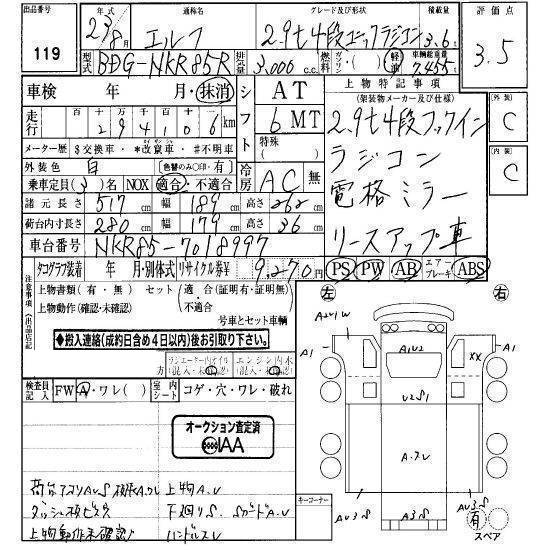 出品番号 119
年式 23/8月
通称名 エルフ
グレード及び形状 2.9t4段ユニックラジコン
積載量 3.6t
評価点 3.5
型式 BDG-NKR85R
排気量 3,000 c.c.
燃料 ガソリン・( ) 軽油
車輌総重量 7,455
車検 年 月・抹消
シフト AT 6 MT
特殊( )
走行 十 万 千 百 十 29410 6 km
メーター歴 $交換車・*改竄車・#不明車
外装色 白 (色替のみ○印・有)
乗車定員(3)名 NOX 適合・不適合
冷房 AC 無
諸元長さ 517 cm 幅 189 cm 高さ 262 cm
荷台内寸長さ 280 cm 幅 179 cm 高さ 36 cm
車台番号 NKR85-7018997
上物特記事項
(架装物メーカー及び仕様)
2.9t4段フックイン
ラジコン
電格ミラー
リースアップ車
PS PW AB エアーブレーキ ABS
外装 C
内装 C
注意事項(出品店記入)
タコグラフ装着 年 月・別体式 リサイクル券¥ 9,270円
上物書類(有・無) セット(適合(証明有・証明無)
上物動作(確認・未確認) ・不適合
号車とセット車輌
◆搬入連絡(成約日含め4日以内)後お引取り下さい。◆
検査員記入 FW A・ワレ( ) 室内シート コゲ・穴・ワレ・破れ
オークション査定済
IAA
上物A.U
下廻りS
上物動作未確認
ハンドルスレ
キーコーナー
左
右
A2U1W
A1
A1U2
XX
A1
U2S1
A3S
AU3S
有
スペア